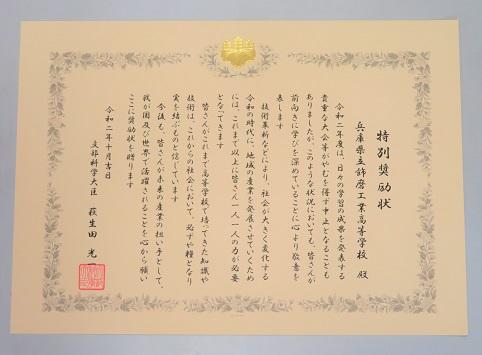 特別奨励状
兵庫県立飾磨工業高等学校 殿
令和二年度は、日々の学習の成果を発表する
貴重な大会等がやむを得ず中止となることも
ありましたが、このような状況においても、皆さんが
前向きに学びを深めていることに心より敬意を
表します
技術革新などにより、社会が大きく変化する
令和の時代に、地域の産業を発展させていくため
には、これまで以上に皆さん一人一人の力が必要
となってきます
皆さんがこれまで高等学校で培ってきた知識や
技術は、これからの社会において、必ずや糧となり
実を結ぶものと信じています
今後も、皆さんが未来の産業の担い手として、
我が国及び世界で活躍されることを心から願い
ここに奨励状を贈ります
令和二年十月吉日
文部科学大臣 萩生田 光一